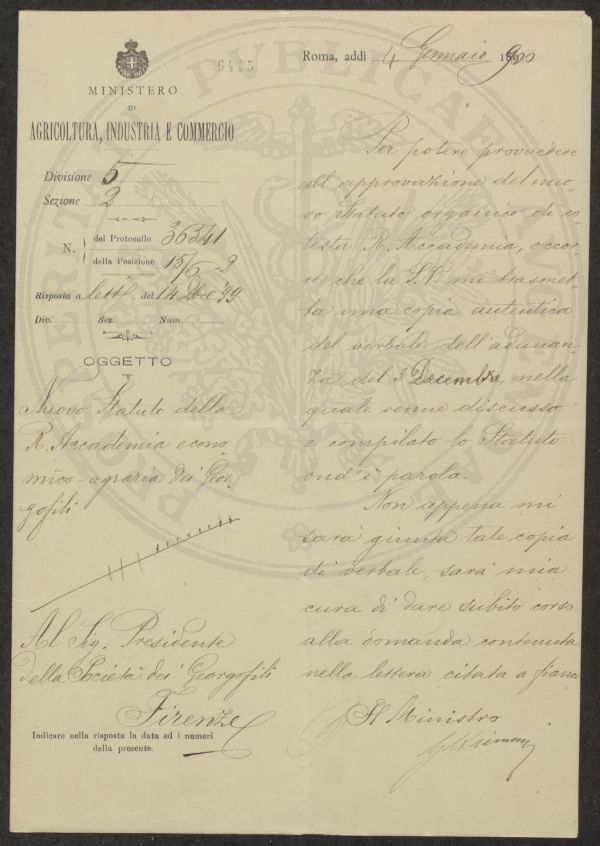 6415
MINISTERO
DI
AGRICOLTURA, INDUSTRIA E COMMERCIO
Divisione 5
Sezione 2
N. del Protocollo 36341
della Posizione 15/5-2
Risposta a lettª del 14 Xbre 99
Div. Sez. Num.
OGGETTO
Nuovo Statuto della
R. Accademia econo-
mico-agraria dei Geor-
gofili
Al Sig. Presidente
della Società dei Georgofili
Firenze
Indicare nella risposta la data ed i numeri
della presente.
Roma, addì 4 Gennaio 1900
Per potere provvedere
all'approvazione del nuo-
vo Statuto organico di co-
testa R. Accademia, occor-
re che la S.V. mi trasmet-
ta una copia autentica
del verbale dell'adunan-
za del 3 Decembre, nella
quale venne discusso
e compilato lo Statuto
ond'è parola.
Non appena mi
sarà giunta tale copia
di verbale, sarà mia
cura di dare subito corso
alla domanda contenuta
nella lettera citata a fianco
Il Ministro